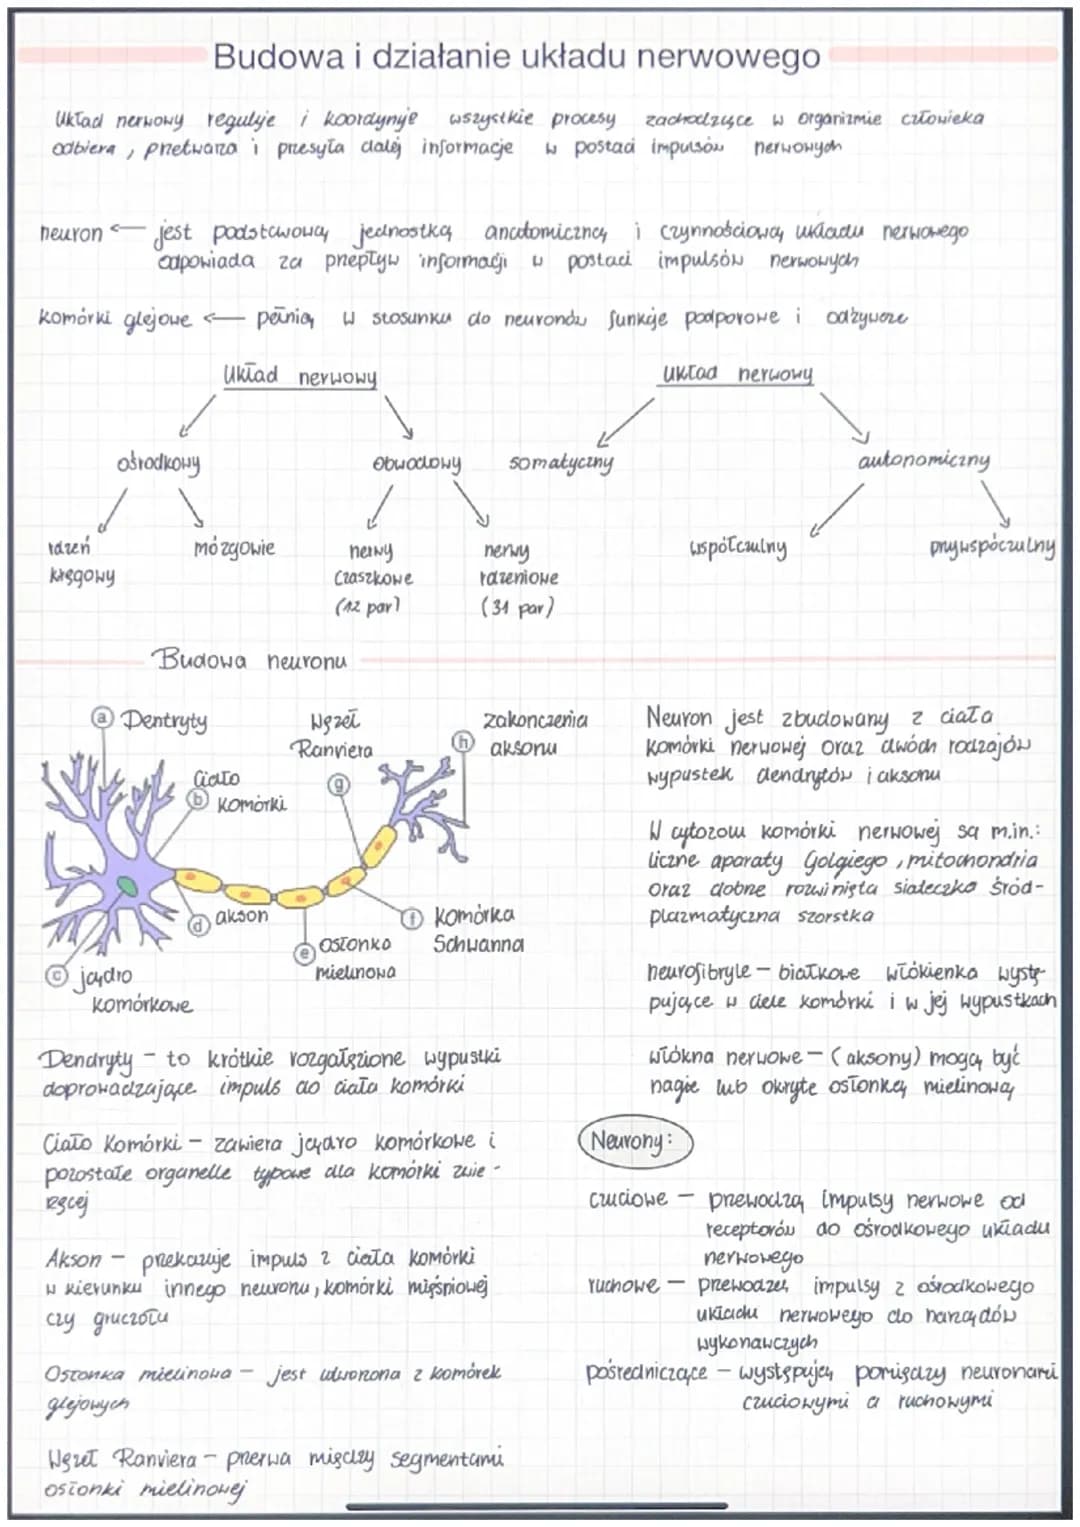 Budowa i działanie układu nerwowego
Układ nerwowy reguluje i koordynuje wszystkie procesy zachodzące w organizmie człowieka
odbiera, przetwarza i przesyła dalej informacje w postaci impulsów nerwowych
neuron ← jest podstawową jednostką anatomiczną i czynnościową układu nerwowego
odpowiada za przepływ informacji w postaci impulsów nerwowych
komórki glejowe ← pełnią w stosunku do neuronów funkcje podporowe i odżywcze
Układ nerwowy
ośrodkowy
obwodowy
rdzeń
kręgowy
mózgowie
nerwy
czaszkowe
(12 par)
nerwy
rdzeniowe
(31 par)
Układ nerwowy
somatyczny
autonomiczny
współczulny
przywspółczulny
Budowa neuronu
a Dentryty
Ciało
b komórki
c jądro
komórkowe
d akson
e osłonka
mielinowa
f komórka
Schwanna
Węzeł
Ranviera
g
zakonczenia
h aksonu
Dendryty - to krótkie rozgałęzione wypustki
doprowadzające impuls do ciała komórki
Ciało komórki - zawiera jądro komórkowe i
pozostałe organelle typowe dla komórki zwie-
rzęcej
Akson - przekazuje impuls z ciała komórki
w kierunku innego neuronu, komórki mięśniowej
czy gruczołu
Osłonka mielinowa - jest utworzona z komórek
glejowych
Węzeł Ranviera - przerwa między segmentami
osłonki mielinowej
Neuron jest zbudowany z ciała
komórki nerwowej oraz dwóch rodzajów
wypustek dendrytów i aksonu
W cytozolu komórki nerwowej są m.in.:
liczne aparaty Golgiego, mitochondria
oraz dobrze rozwinięta siateczka śród-
plazmatyczna szorstka
neurofibryle - białkowe włókienka wystę-
pujące w ciele komórki i w jej wypustkach
włókna nerwowe - (aksony) mogą być
nagie lub okryte osłonką mielinową
Neurony:
czuciowe - przewodzą impulsy nerwowe od
receptorów do ośrodkowego układu
nerwowego
ruchowe - przewodzą impulsy z ośrodkowego
układu nerwowego do narządów
wykonawczych
pośredniczące - występują pomiędzy neuronami
czuciowymi a ruchowymi